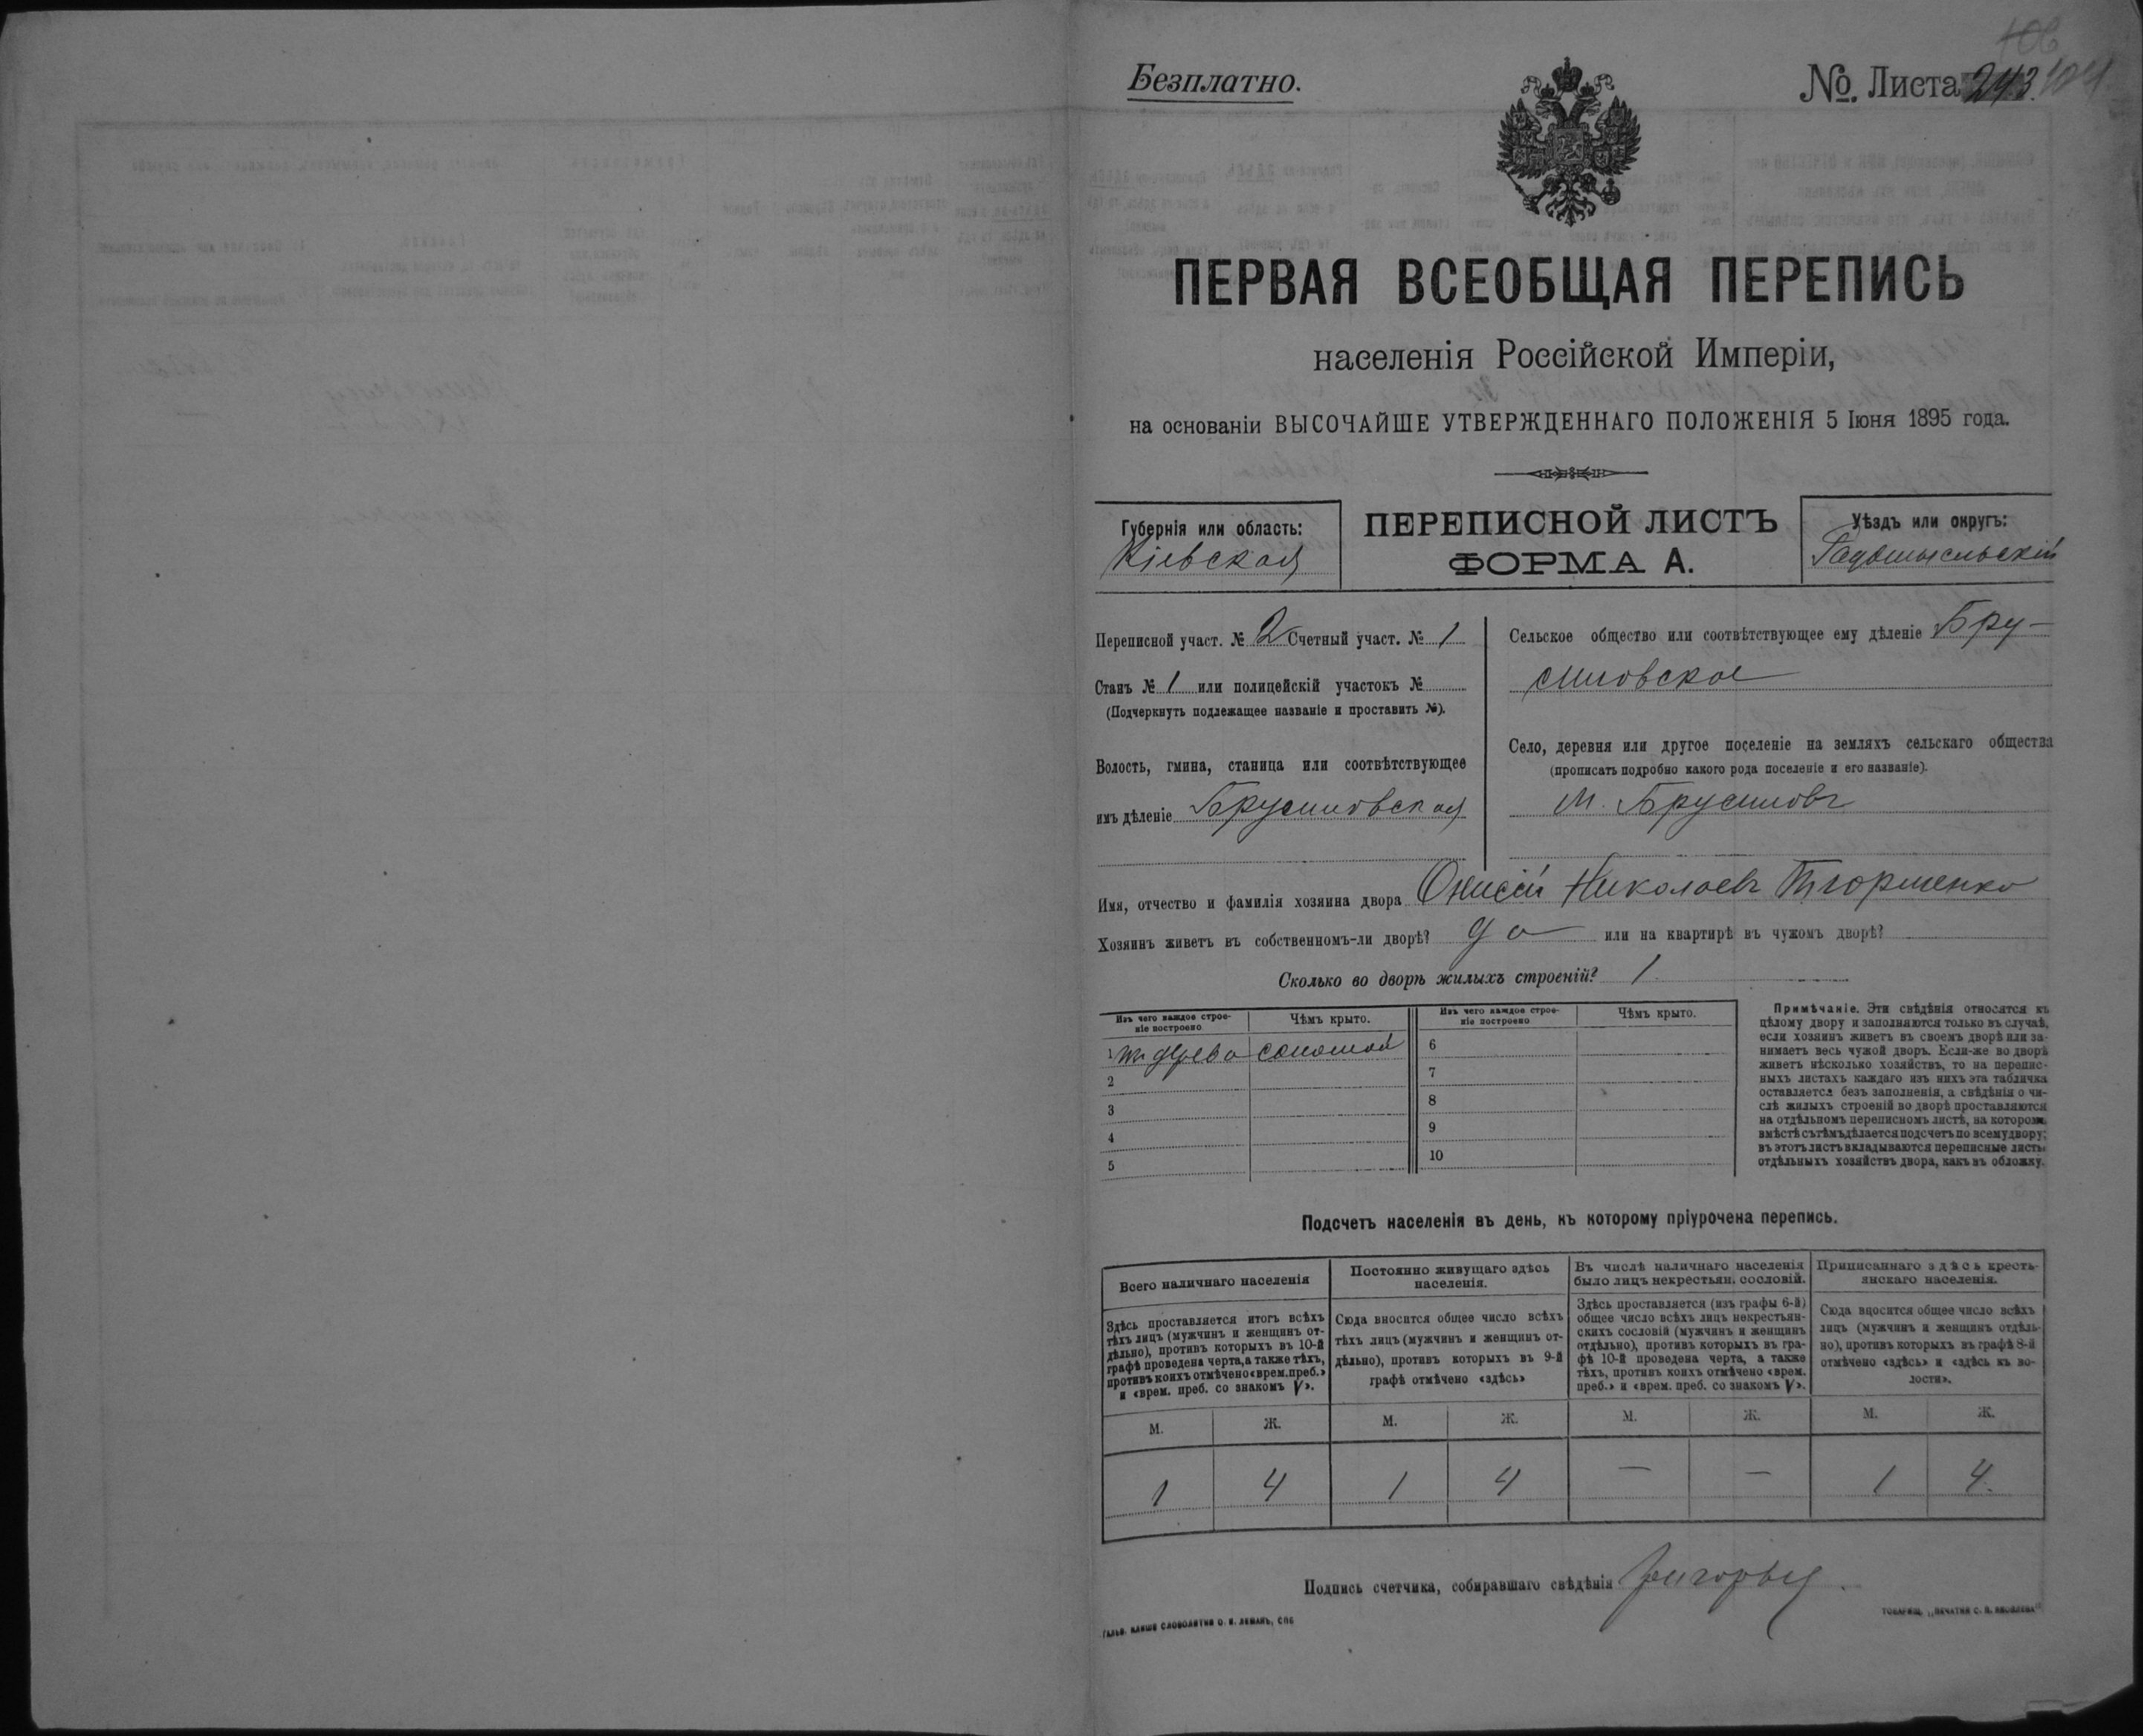 Безплатно.
№. Листа 243.
ПЕРВАЯ ВСЕОБЩАЯ ПЕРЕПИСЬ
населенія Россійской Имперіи,
на основаніи ВЫСОЧАЙШЕ УТВЕРЖДЕННАГО ПОЛОЖЕНІЯ 5 Іюня 1895 года.
Губернія или область:
Кіевская
ПЕРЕПИСНОЙ ЛИСТЪ
ФОРМА А.
Уѣздъ или округъ:
Радомысльскій
Переписной участ. № 2 Счетный участ. № 1
Станъ № 1 или полицейскій участокъ №
(Подчеркнуть подлежащее названіе и проставить №).
Волость, гмина, станица или соотвѣтствующее
имъ дѣленіе Брусиловская
Сельское общество или соотвѣтствующее ему дѣленіе Бру-
силовское
Село, деревня или другое поселеніе на земляхъ сельскаго общества
(прописать подробно какого рода поселеніе и его названіе).
М. Брусиловъ
Имя, отчество и фамилія хозяина двора Онисій Николаевъ
Хозяинъ живетъ въ собственномъ-ли дворѣ? да или на квартирѣ въ чужомъ дворѣ?
Сколько во дворѣ жилыхъ строеній? 1
Изъ чего каждое строе-
ніе построено
Чѣмъ крыто.
Изъ чего каждое строе-
ніе построено
Чѣмъ крыто.
1 изъ дерева соломой
2
3
4
5
6
7
8
9
10
Примѣчаніе. Эти свѣдѣнія относятся къ
цѣлому двору и заполняются только въ случаѣ,
если хозяинъ живетъ въ своемъ дворѣ или за-
нимаетъ весь чужой дворъ. Если-же во дворѣ
живетъ нѣсколько хозяйствъ, то на перепис-
ныхъ листахъ каждаго изъ нихъ эта табличка
оставляется безъ заполненія, а свѣдѣнія о чи-
слѣ жилыхъ строеній во дворѣ проставляются
на отдѣльномъ переписномъ листѣ, на которомъ
вмѣстѣ съ тѣмъ дѣлается подсчетъ по всему двору;
въ этотъ листъ вкладываются переписные листы
отдѣльныхъ хозяйствъ двора, какъ въ обложку.
Подсчетъ населенія въ день, къ которому пріурочена перепись.
Всего наличнаго населенія
Здѣсь проставляется итогъ всѣхъ
тѣхъ лицъ (мужчинъ и женщинъ от-
дѣльно), противъ которыхъ въ 10-й
графѣ проведена черта, а также тѣхъ,
противъ коихъ отмѣчено «врем. преб.»
и «врем. преб. со знакомъ V».
Постоянно живущаго здѣсь
населенія.
Сюда вносится общее число всѣхъ
тѣхъ лицъ (мужчинъ и женщинъ от-
дѣльно), противъ которыхъ въ 9-й
графѣ отмѣчено «здѣсь»
Въ числѣ наличнаго населенія
было лицъ некрестьян. сословій.
Здѣсь проставляется (изъ графы 6-й)
общее число всѣхъ лицъ некрестьян-
скихъ сословій (мужчинъ и женщинъ
отдѣльно), противъ которыхъ въ гра-
фѣ 10-й проведена черта, а также
тѣхъ, противъ коихъ отмѣчено «врем.
преб.» и «врем. преб. со знакомъ V».
Приписаннаго здѣсь кресть-
янскаго населенія.
Сюда вносится общее число всѣхъ
лицъ (мужчинъ и женщинъ отдѣль-
но), противъ которыхъ въ графѣ 8-й
отмѣчено «здѣсь» и «здѣсь къ во-
лости».
М. Ж. М. Ж. М. Ж. М. Ж.
1 4 1 4 — — 1 4.
Подпись счетчика, собиравшаго свѣдѣнія
ГАЛЬВ. КЛИШЕ СЛОВОЛИТНИ О. И. ЛЕМАНЪ, СПБ
ТОВАРИЩ. „ПЕЧАТНЯ С. П. ЯКОВЛЕВА"